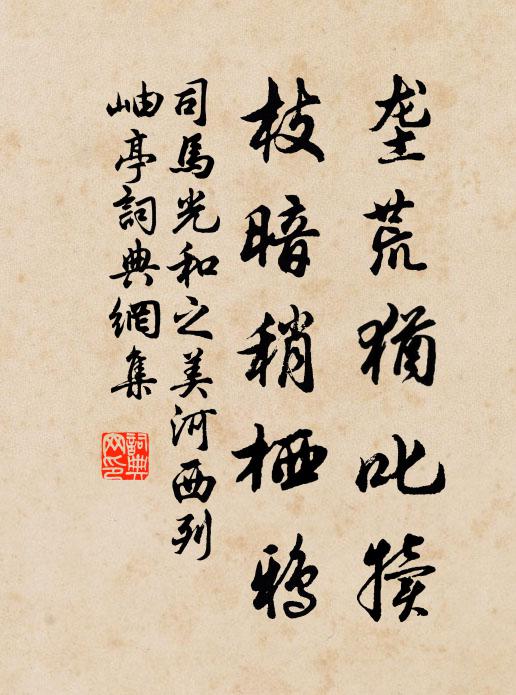 垄荒猶叱犢
枝暗稍栖鴉
司馬光和之美河西列
岫亭詞典網集
詞典网印